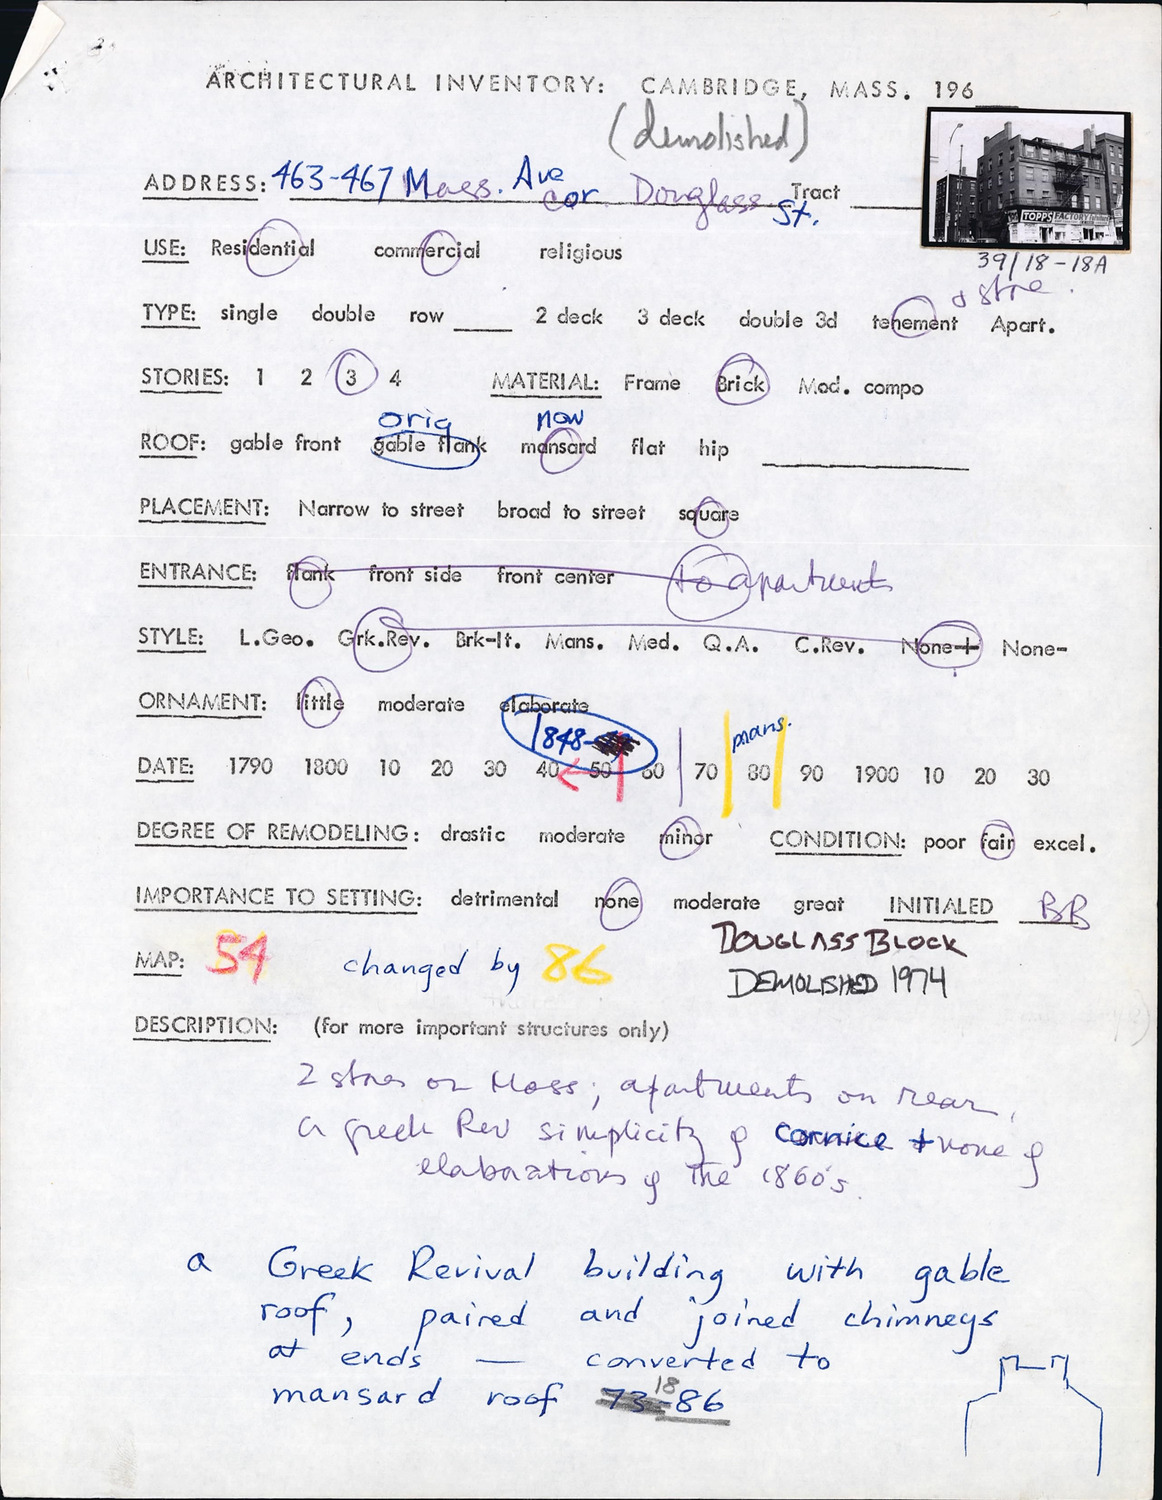 ARCHITECTURAL INVENTORY: CAMBRIDGE, MASS. 196
(demolished)
ADDRESS: 463-467 Mass. Ave cor. Douglass St. Tract
TOPPS FACTORY
39/18-18A
USE: Residential commercial religious
& store.
TYPE: single double row ____ 2 deck 3 deck double 3d tenement Apart.
STORIES: 1 2 3 4 MATERIAL: Frame Brick Mod. compo
orig now
ROOF: gable front gable flank mansard flat hip
PLACEMENT: Narrow to street broad to street square
ENTRANCE: flank front side front center to apartments
STYLE: L.Geo. Grk.Rev. Brk-It. Mans. Med. Q.A. C.Rev. None+ None-
ORNAMENT: little moderate elaborate
1848- mans.
DATE: 1790 1800 10 20 30 40 50 60 70 80 90 1900 10 20 30
DEGREE OF REMODELING: drastic moderate minor CONDITION: poor fair excel.
IMPORTANCE TO SETTING: detrimental none moderate great INITIALED BB
DOUGLASS BLOCK
MAP: 54 changed by 86
DEMOLISHED 1974
DESCRIPTION: (for more important structures only)
2 stores on Mass; apartments on rear,
a greek Rev simplicity of cornice + none of
elaborations of the 1860's.
a Greek Revival building with gable
roof, paired and joined chimneys
at ends — converted to
mansard roof 18 86